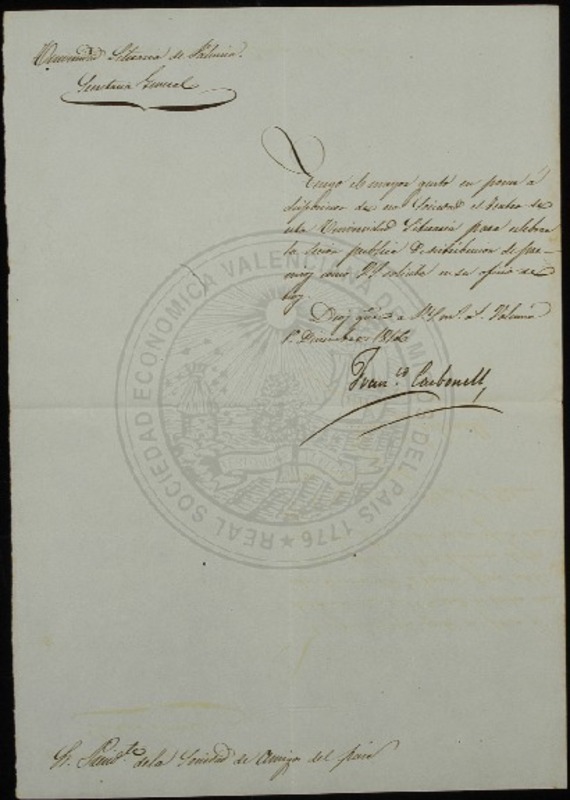 Universidad Literaria de Valencia.
Secretaria General
Tengo el mayor gusto en poner á
disposicion de esa Sociedad el teatro de
esta Universidad Literaria para celebrar
la sesion publica Distribucion de pre-
mios como V.S. solicita en su oficio de
hoy
Dios gūe a V.S. m.s a.s Valencia
Diciembre
Fran.co Carbonell
Sr. Presid.te de la Sociedad de Amigos del país
REAL SOCIEDAD ECONOMICA VALENCIANA DE AMIGOS DEL PAIS 1776